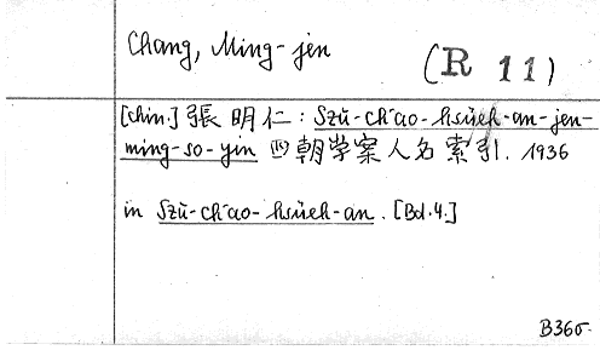 Chang, Ming-jen
(R 11)
[chin.] 張明仁: Szŭ-ch'ao-hsüeh-an-jen-
ming-so-yin 四朝学案人名索引. 1936
in Szŭ-ch'ao-hsüeh-an. [Bd.4.]
B365